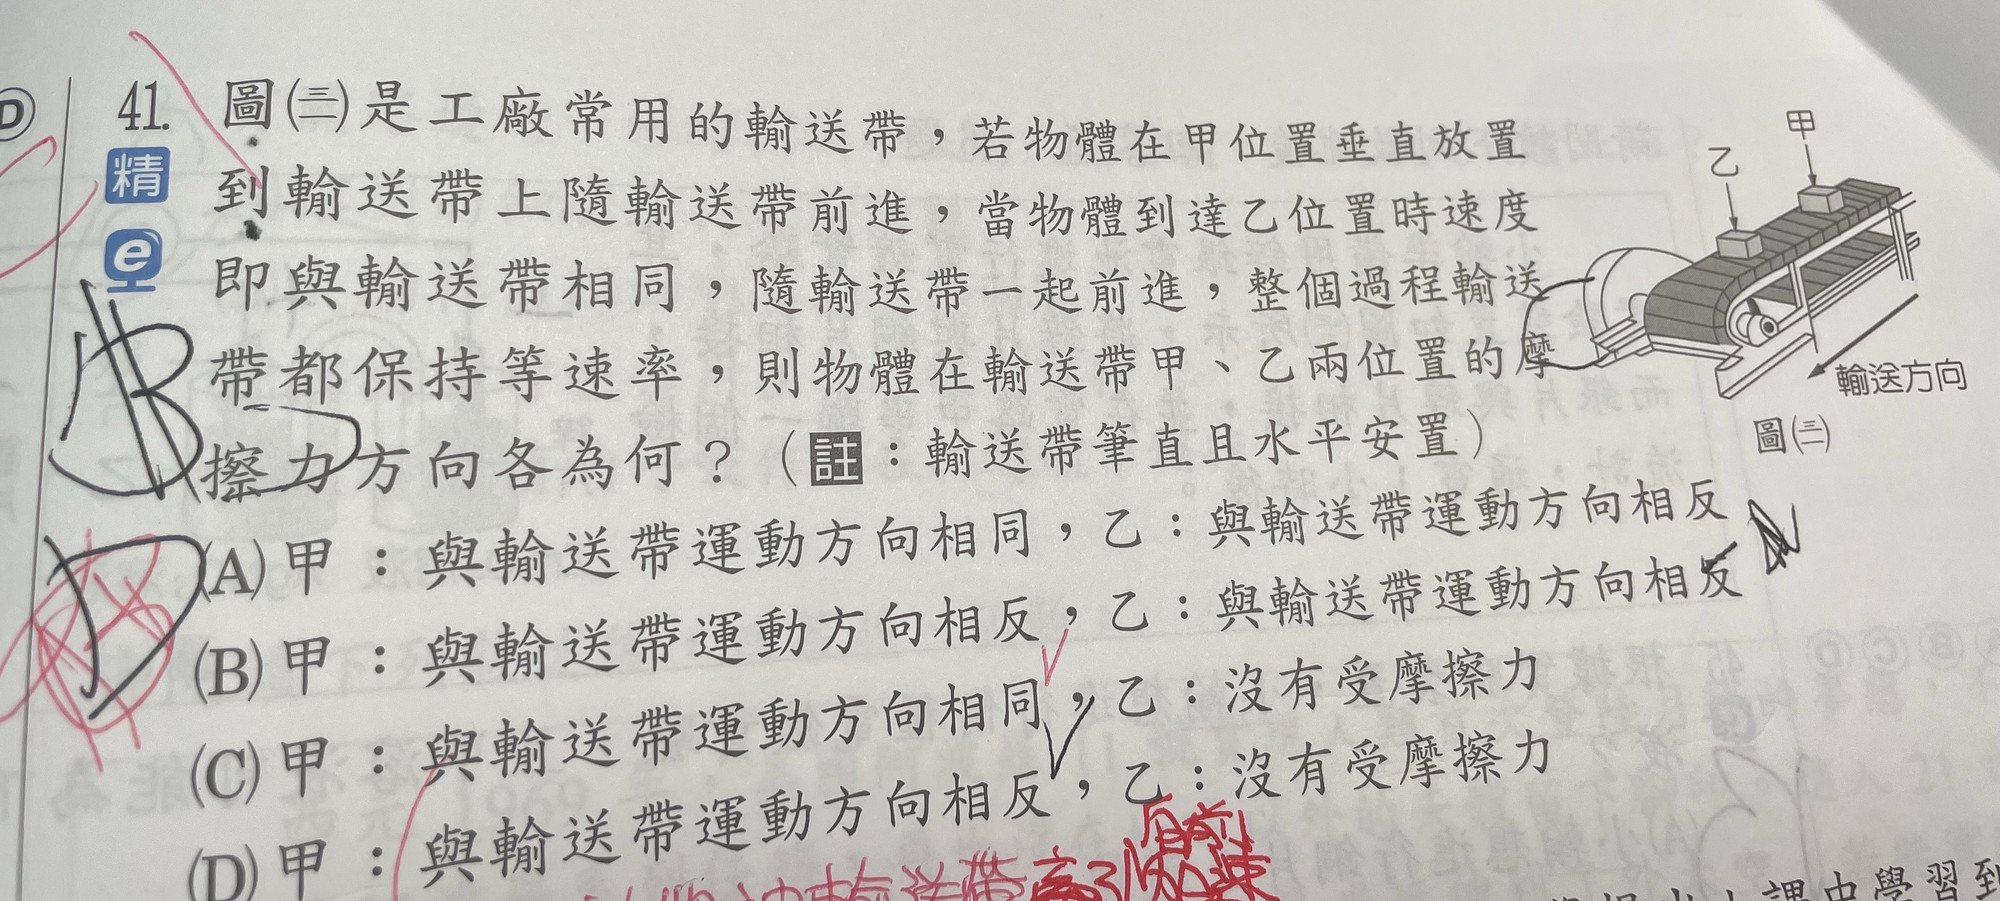 41. 圖㈢是工廠常用的輸送帶，若物體在甲位置垂直放置
精 到輸送帶上隨輸送帶前進，當物體到達乙位置時速度
e 即與輸送帶相同，隨輸送帶一起前進，整個過程輸送
帶都保持等速率，則物體在輸送帶甲、乙兩位置的摩
擦力方向各為何？（註：輸送帶筆直且水平安置）
(A)甲：與輸送帶運動方向相同，乙：與輸送帶運動方向相反
(B)甲：與輸送帶運動方向相反，乙：與輸送帶運動方向相反
(C)甲：與輸送帶運動方向相同，乙：沒有受摩擦力
(D)甲：與輸送帶運動方向相反，乙：沒有受摩擦力
甲
乙
輸送方向
圖㈢
D
B
D
輸送帶